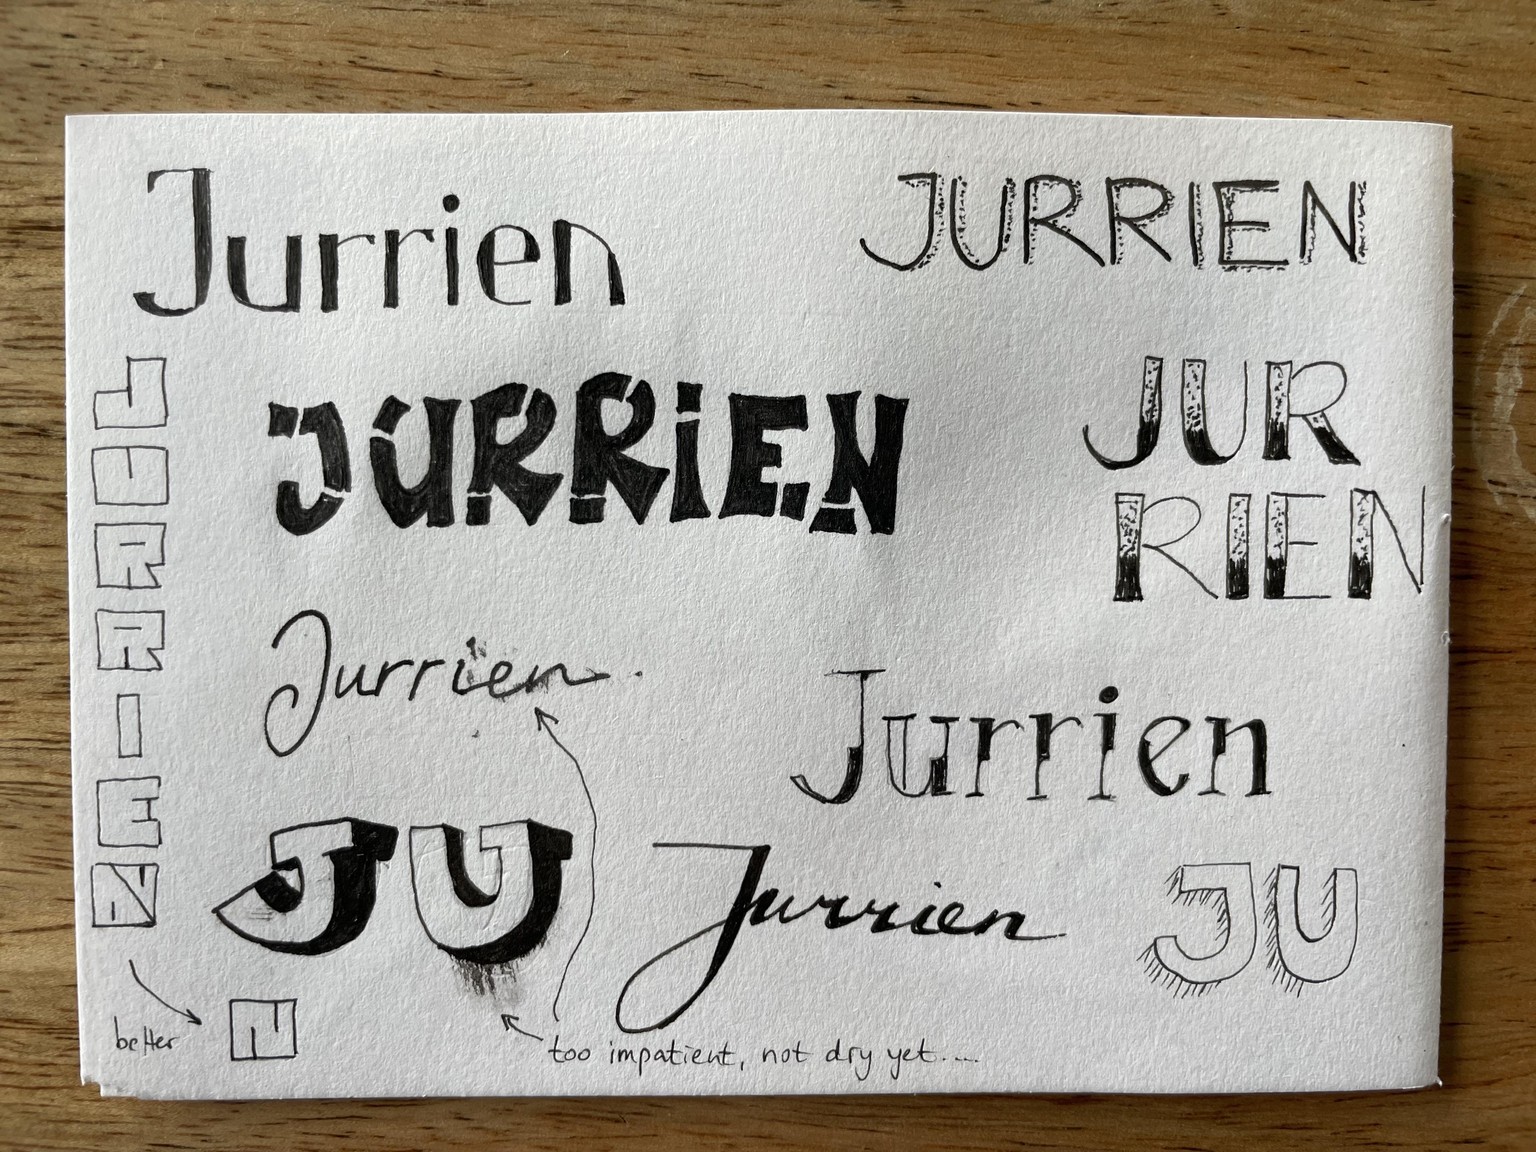 Jurrien
JURRIEN
JURRiEN
JUR
RIEN
JURRIEN
Jurrien
Jurrien
JU
Jurrien
JU
better
N
too impatient, not dry yet.....